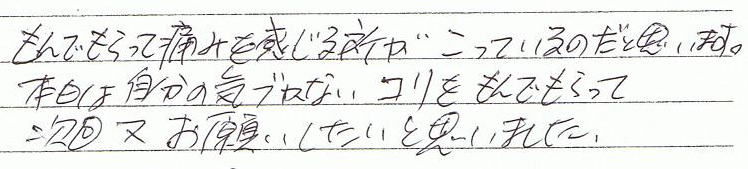 もんでもらって痛みを感じる所がこっているのだと思います。
本日は自分の気づかないコリをもんでもらって
次回又お願いしたいと思いました。